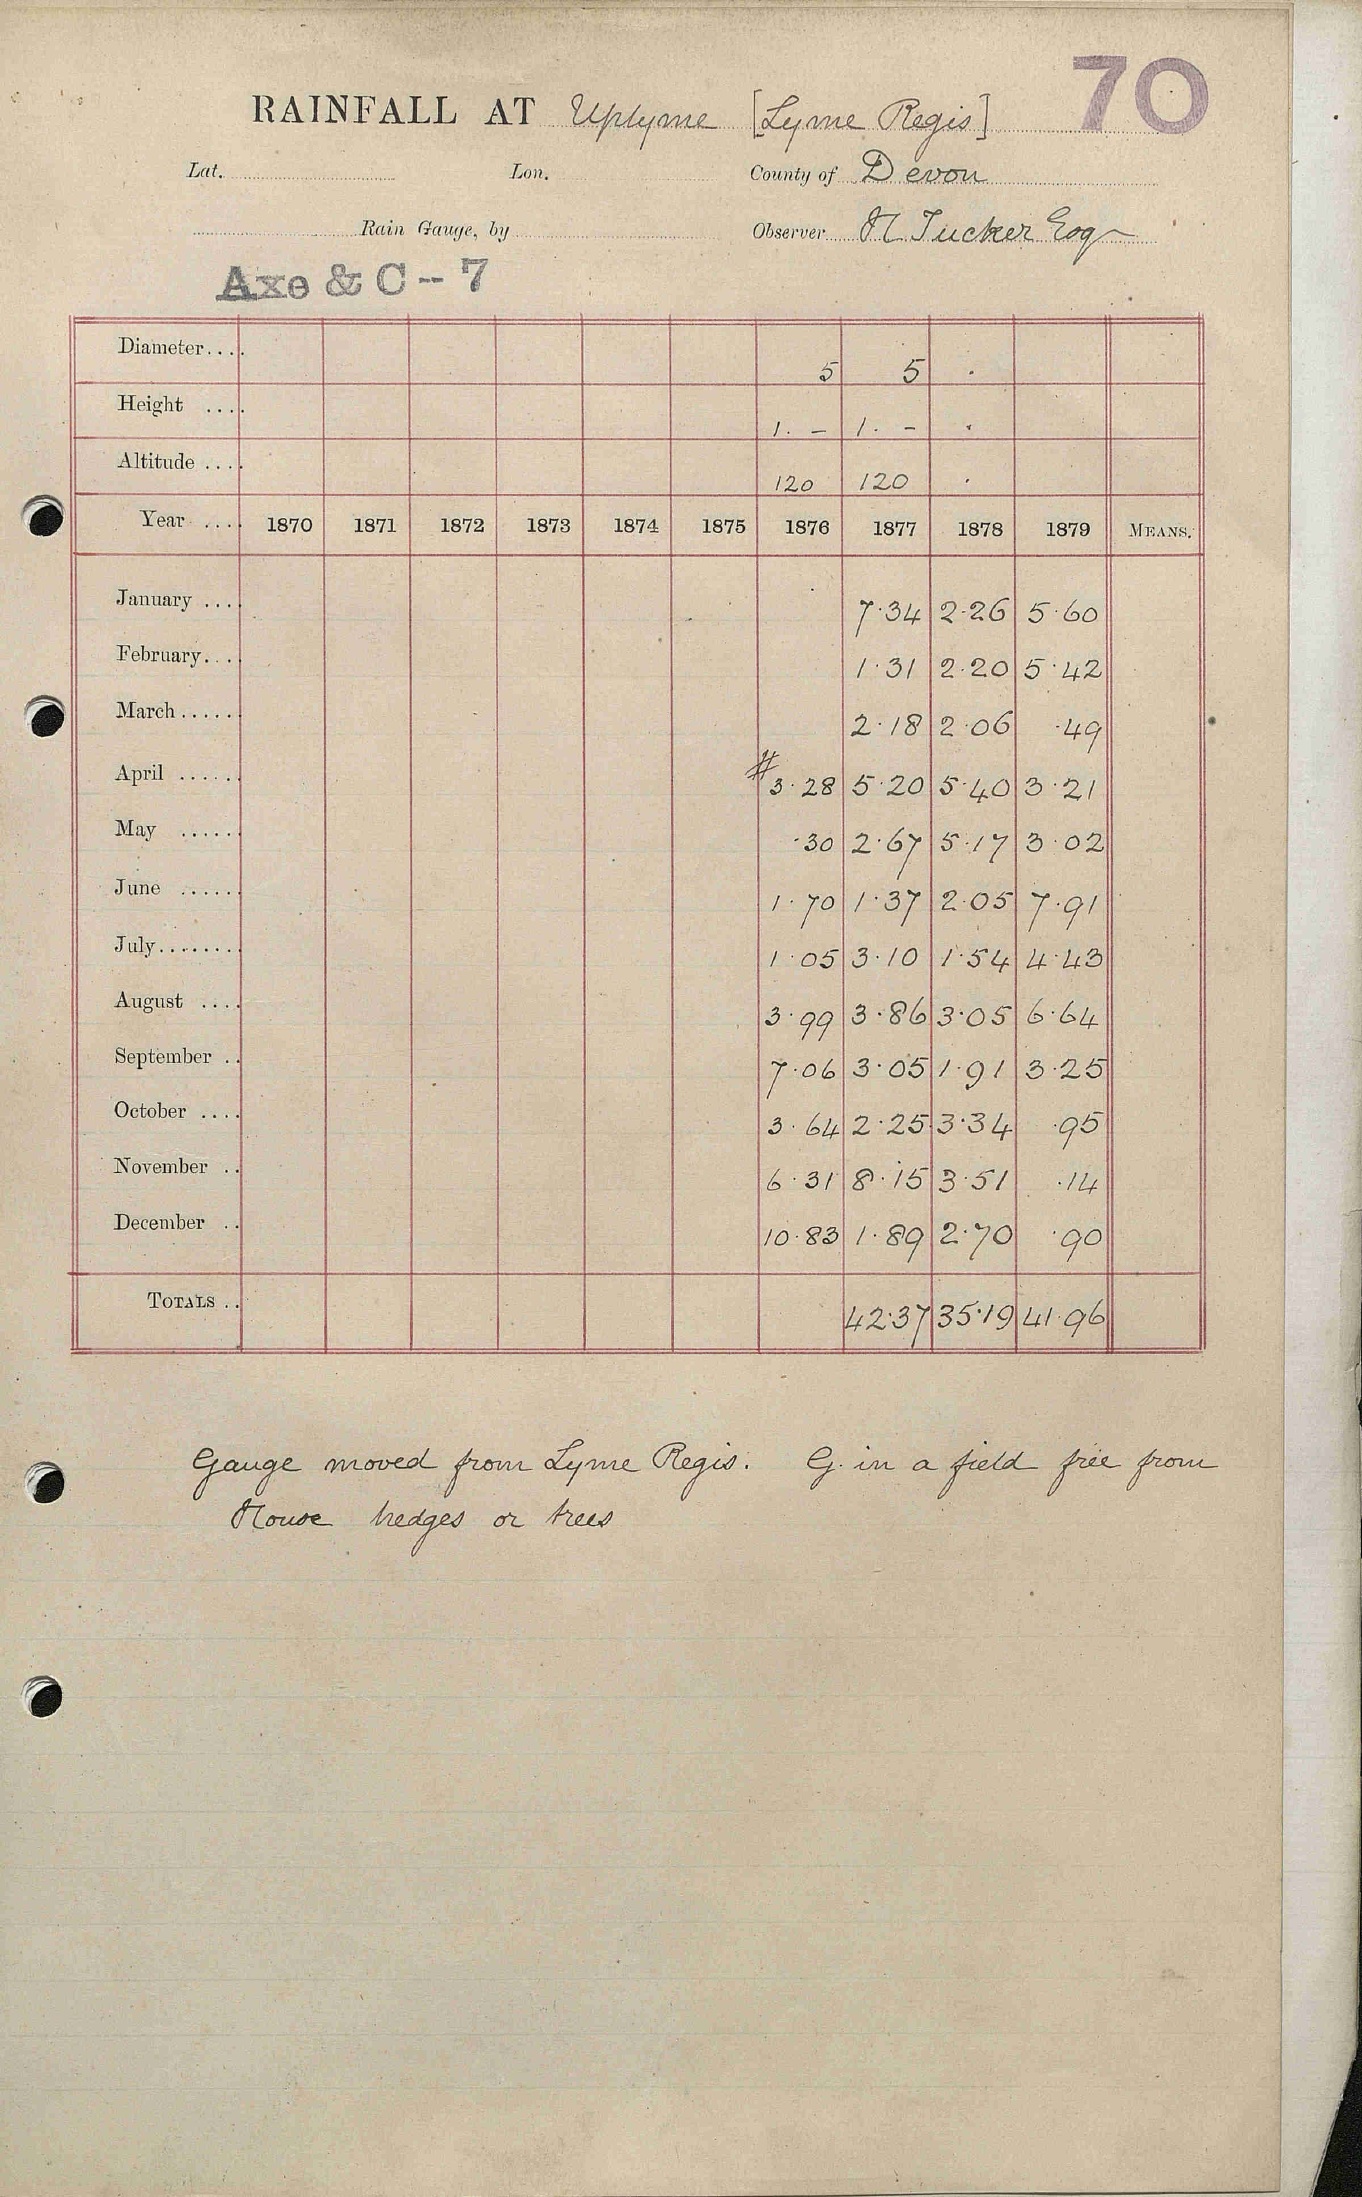 70
RAINFALL AT Uplyme [Lyme Regis]
Lat. Lon. County of Devon
Rain Gauge, by Observer H Tucker Esq
Axe & C - 7
Diameter.... 5 5 .
Height .... 1. - 1. - .
Altitude .... 120 120 .
Year .... 1870 1871 1872 1873 1874 1875 1876 1877 1878 1879 MEANS.
January .... 7.34 2.26 5.60
February.... 1.31 2.20 5.42
March...... 2.18 2.06 .49
April ...... # 3.28 5.20 5.40 3.21
May ...... .30 2.67 5.17 3.02
June ...... 1.70 1.37 2.05 7.91
July........ 1.05 3.10 1.54 4.43
August .... 3.99 3.86 3.05 6.64
September .. 7.06 3.05 1.91 3.25
October .... 3.64 2.25 3.34 .95
November .. 6.31 8.15 3.51 .14
December .. 10.83 1.89 2.70 .90
TOTALS .. 42.37 35.19 41.96
Gauge moved from Lyme Regis. G. in a field free from
House hedges or trees